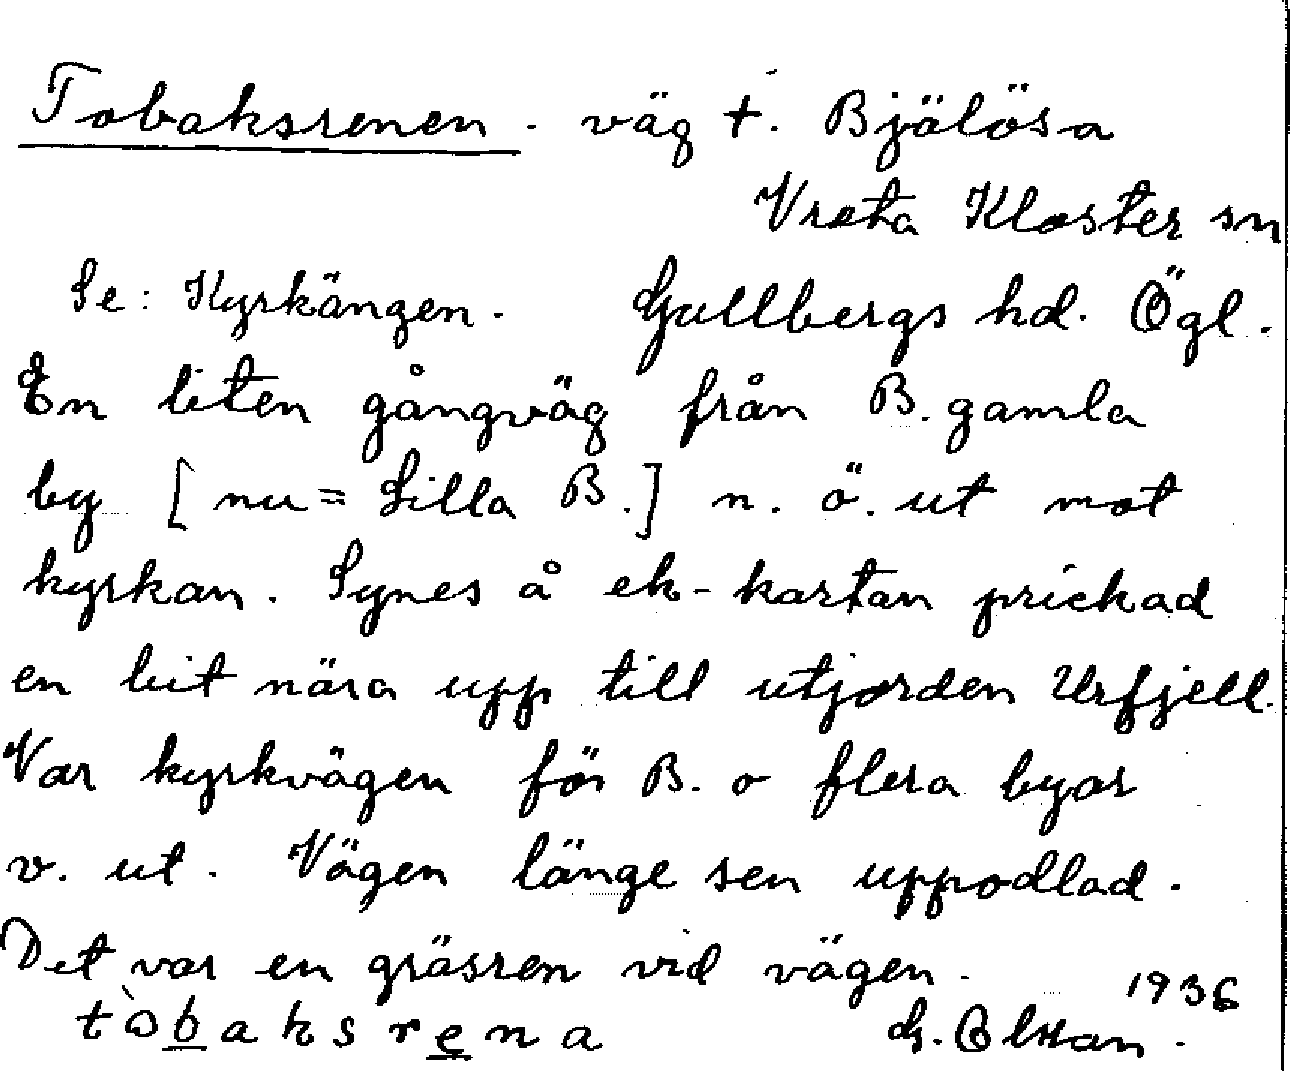 Tobaksrenen. väg t. Bjälösa
Vreta Kloster sn
Se: Kyrkängen. Gullbergs hd. Ögl.
En liten gångväg från B. gamla
by [nu = Lilla B.] n. ö. ut mot
kyrkan. Synes å ek-kartan prickad
en bit nära upp till utjorden Urfjell.
Var kyrkvägen för B. o flera byar
v. ut. Vägen länge sen uppodlad.
Det var en gräsren vid vägen.
1936
tòbaksrena G.